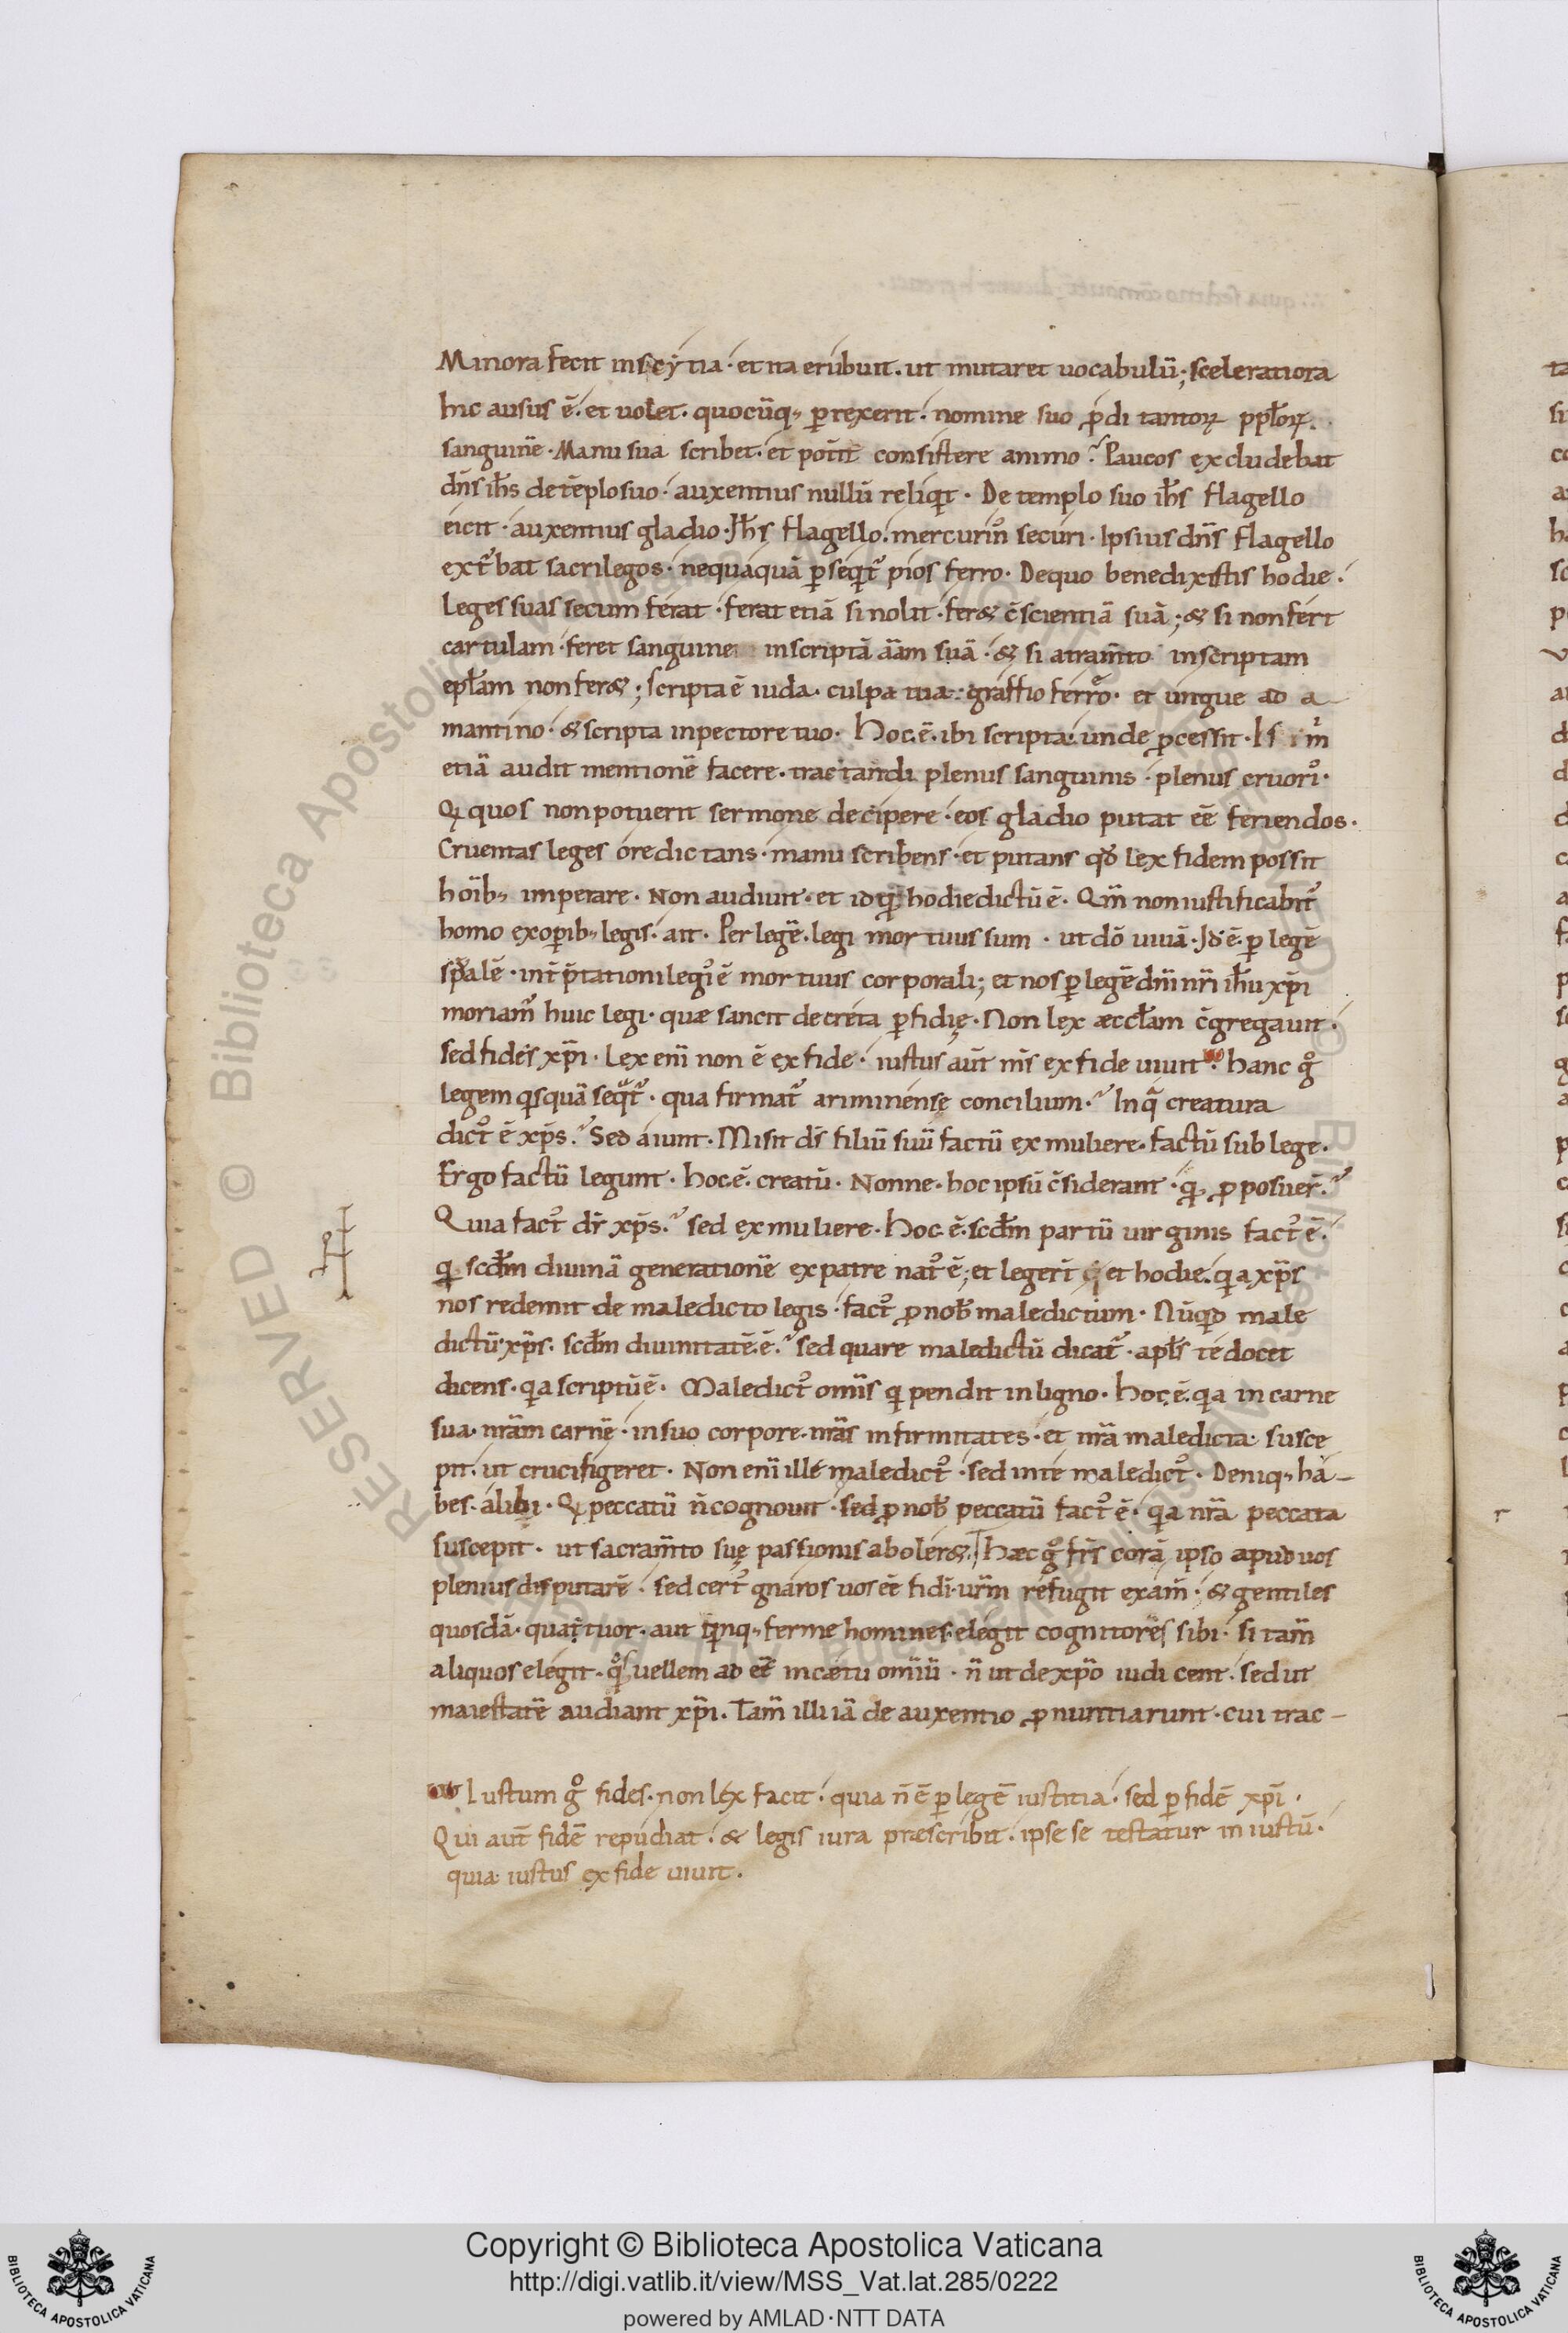 Minora fecit inscẏtia· et ita erubuit. ut mutaret uocabulū; sceleratiora
hic ausus ē. et uolet. quocūq; ꝑrexerit. nomine suo ꝓdi tantoꝝ ppl̄oꝝ.
sanguinē. Manu sua scribet. et pot̄it consistere animo? Paucos excludebat
dn̄s ih̄s detēplosuo· auxentius nullū reliqͥt· De templo suo ih̄s flagello
eicit· auxentius gladio· Jh̄s flagello. mercurin᷒ securi· Ipsius dn̄s flagello
ext᷒bat sacrilegos· nequaquā ꝑseqͥt᷒ pios ferro· Dequo benedixistis hodie·
Leges suas secum ferat· ferat etiā si nolit· fer& c̄scientiā suā; & si nonfert
cartulam· feret sanguine inscriptā āam suā· & si atram̄to inscriptam
epl̄am non fer&; scripta ē iuda· culpa tua· graffio ferro᷒· et ungue ad a-
mantino· & scripta inpectore tuo· Hoc.ē. ibi scripta. unde ꝓcessit· Is im̄
etiā audit mentionē facere· tractandi plenus sanguinis· plenus cruori᷒·
Qͥ quos nonpotuerit sermone decipere· eos gladio putat ēē feriendos·
Cruentas leges oredictans· manu scribens· et putans qd̄ lex fidem possit
hoīb; imperare· Non audiuit· et id qd̄ hodie dictū ē· Qm̄ non iustificabit᷒
homo exoꝑib; legis· ait· Per legē. legi mortuus sum· ut dō uiuā· Jd.ē. ꝑ legē
spalē· int̄p̄tationi leg᷒ ē mortuus corporali; et nos ꝑ legē dn̄i nr̄i ih̄u xp̄i
moriam᷒ huic legi· quæ sancit decreta ꝑfidię· Non lex æccl̄am c̄gregauit·
sed fides xp̄i· Lex enī non ē ex fide· iustus aūt m̄s ex fide uiuit· hanc gͦ
legem qͥsquā seqͥt᷒· qua firmat᷒ ariminense concilium·? Inqͣ creatura
dict᷒ ē xp̄s.? Sed aiunt· Misit ds̄ filiū suū factū ex muliere· factū sub lege·
Ergo factū legunt· hoc.ē. creatū· Nonne· hoc ipsū c̄siderant· qd̄ ꝓposuer̄.?
Quia fact᷒ dr̄ xp̄s.? sed ex muliere· Hoc.ē. scd̄m partū uirginis fact᷒ ē·
qͥ scd̄m diuinā generationē ex patre nat᷒ ē; et leger̄t et hodie. qͥa xp̄s
nos redemit de maledicto legis· fact᷒ ꝓ nob̄ maledictum· Nūqͥd male
dictū xp̄s· scd̄m diuinitatē.ē.? sed quare maledictū dicat᷒· apl̄s te docet
dicens· qͥa scriptū ē· Maledict᷒ omīs qͥ pendit in ligno· hoc.ē. qͥa in carne
sua· nr̄am carnē· in suo corpore· nr̄as infirmitates· et nr̄a maledicta· susce
pit· ut crucifigeret· Non enī ille maledict᷒· sed inte maledict᷒· Deniq; ha-
bes· alibi· Qͥ peccatū n̄ cognouit· sed ꝓ nob̄ peccatū fact᷒ ē· qͥa nr̄a peccata
suscepit· ut sacram̄to suę passionis aboler&. Hæc gͦ fr̄s corā ipso apud uos
plenius disputarē· sed cert᷒ gnaros uos ēē fidi· ur̄m refugit exam̄· & gentiles
quosdā· quattuor· aut qͥnq; ferme homines elegit cognitores sibi· si tam̄
aliquos elegit· qͦs uellem ad ēē incætu omīū· n̄ ut de xp̄o iudicent· sed ut
maiestatē audiant xp̄i. Tam̄ illi iā de auxentio ꝓnuntiarunt· cui trac-
Iustum gͦ fides· non lex facit· quia n̄ ē ꝑ legē iustitia· sed ꝑ fidē xp̄i·
Qui aūt fidē repudiat· & legis iura præscribit· ipse se testatur iniustū·
quia iustus ex fide uiuit·
Copyright © Biblioteca Apostolica Vaticana
http://digi.vatlib.it/view/MSS_Vat.lat.285/0222
powered by AMLAD·NTT DATA
BIBLIOTECA APOSTOLICA VATICANA
BIBLIOTECA APOSTOLICA VATICANA